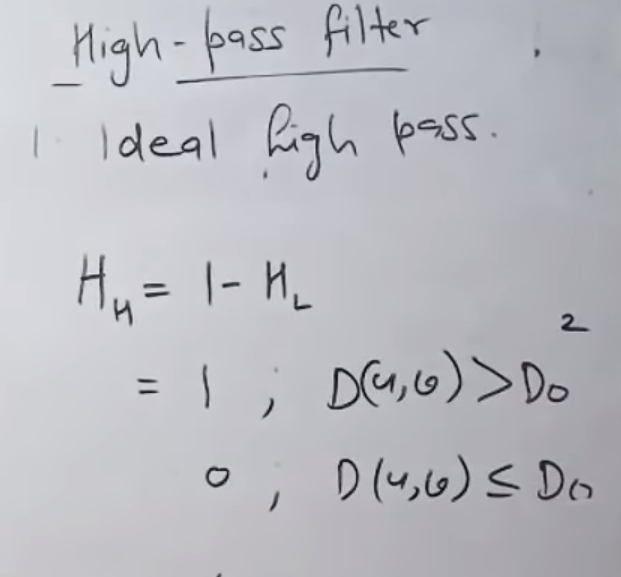 High-pass filter
1 Ideal high pass.
H_H = 1 - H_L
2
= 1 ; D(u,v) > D0
0 ; D(u,v) ≤ D0